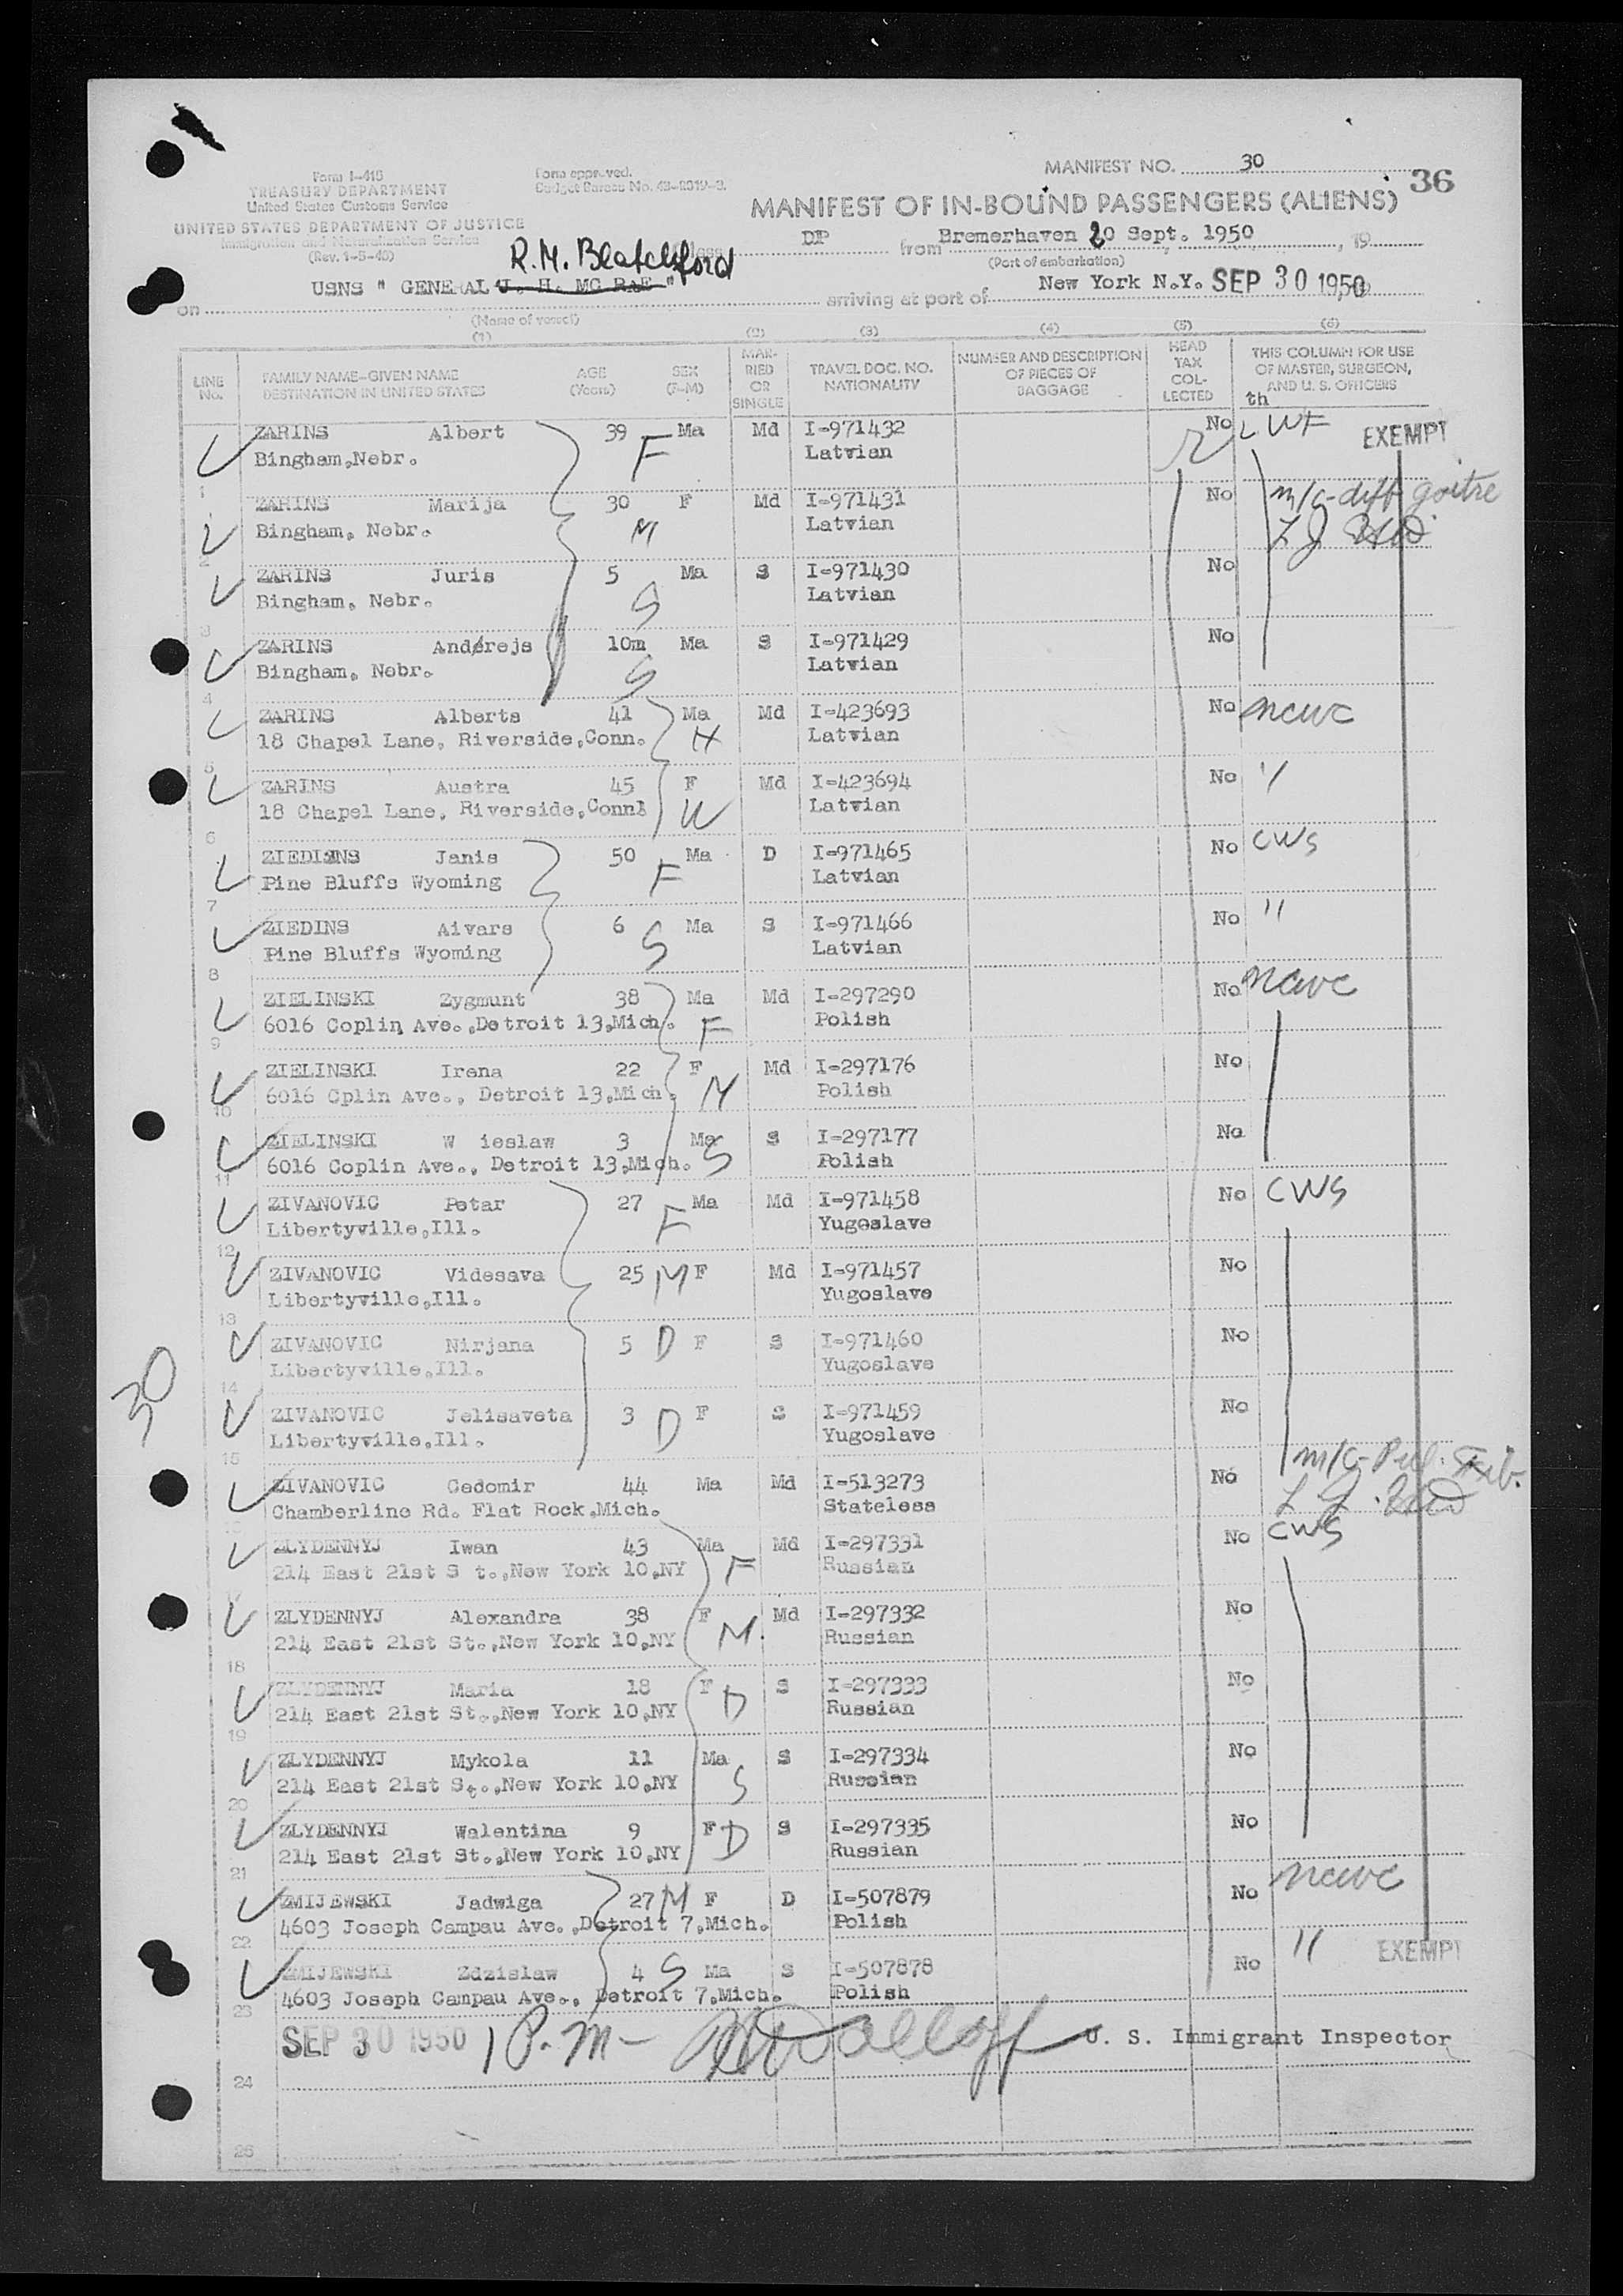 MANIFEST NO. 30
36
Form I-418
TREASURY DEPARTMENT
United States Customs Service
UNITED STATES DEPARTMENT OF JUSTICE
Immigration and Naturalization Service
(Rev. 1-5-48)
Form approved.
Budget Bureau No. 43-R019-3.
MANIFEST OF IN-BOUND PASSENGERS (ALIENS)
Class DP from Bremerhaven 20 Sept. 1950, 19
(Port of embarkation)
R.M. Blatchford
on USNS " GENERAL J. H. MC RAE " arriving at port of New York N.Y. SEP 30 1950
(Name of vessel)
(1) (2) (3) (4) (5) (6)
LINE No. FAMILY NAME-GIVEN NAME DESTINATION IN UNITED STATES AGE (Years) SEX (F-M) MARRIED OR SINGLE TRAVEL DOC. NO. NATIONALITY NUMBER AND DESCRIPTION OF PIECES OF BAGGAGE HEAD TAX COLLECTED THIS COLUMN FOR USE OF MASTER, SURGEON, AND U. S. OFFICERS
th
ZARINS Albert 39 F Ma Md I-971432 No LWF EXEMPT
Bingham,Nebr. Latvian
1
ZARINS Marija 30 F Md I-971431 No m/c-diff goitre
Bingham, Nebr. M Latvian
2
ZARINS Juris 5 Ma S I-971430 No
Bingham, Nebr. S Latvian
3
ZARINS Anderejs 10m Ma S I-971429 No
Bingham, Nebr. S Latvian
4
ZARINS Alberts 41 Ma Md I-423693 No ncwc
18 Chapel Lane, Riverside,Conn. H Latvian
5
ZARINS Austra 45 F Md I-423694 No "
18 Chapel Lane, Riverside,Conn. W Latvian
6
ZIEDINS Janis 50 F Ma D I-971465 No CWS
Pine Bluffs Wyoming Latvian
7
ZIEDINS Aivars 6 S Ma S I-971466 No "
Pine Bluffs Wyoming Latvian
8
ZIELINSKI Zygmunt 38 Ma Md I-297290 No ncwc
6016 Coplin Ave.,Detroit 13,Mich. F Polish
9
ZIELINSKI Irena 22 F Md I-297176 No
6016 Cplin Ave., Detroit 13,Mich. M Polish
10
ZIELINSKI W ieslaw 3 Ma S S I-297177 No
6016 Coplin Ave., Detroit 13,Mich. Polish
11
ZIVANOVIC Petar 27 F Ma Md I-971458 No CWS
Libertyville,Ill. Yugoslave
12
ZIVANOVIC Videsava 25 M F Md I-971457 No
Libertyville,Ill. Yugoslave
13
ZIVANOVIC Nirjana 5 D F S I-971460 No
Libertyville,Ill. Yugoslave
14
ZIVANOVIC Jelisaveta 3 D F S I-971459 No
Libertyville,Ill. Yugoslave
15
ZIVANOVIC Cedomir 44 Ma Md I-513273 No m/c-Pul.
Chamberline Rd. Flat Rock,Mich. Stateless
ZLYDENNYJ Iwan 43 Ma Md I-297331 No CWS
214 East 21st S t.,New York 10,NY F Russian
ZLYDENNYJ Alexandra 38 F Md I-297332 No
214 East 21st St.,New York 10,NY M. Russian
18
ZLYDENNYJ Maria 18 F D S I-297333 No
214 East 21st St.,New York 10,NY Russian
19
ZLYDENNYJ Mykola 11 Ma S I-297334 No
214 East 21st St.,New York 10,NY S Russian
20
ZLYDENNYJ Walentina 9 F D S I-297335 No
214 East 21st St.,New York 10,NY Russian
21
ZMIJEWSKI Jadwiga 27 M F D I-507879 No ncwc
4603 Joseph Campau Ave.,Detroit 7,Mich. Polish
22
ZMIJEWSKI Zdzislaw 4 S Ma S I-507878 No " EXEMPT
4603 Joseph Campau Ave., Detroit 7,Mich. Polish
23
30
SEP 30 1950 1 P.M- U. S. Immigrant Inspector
24
25